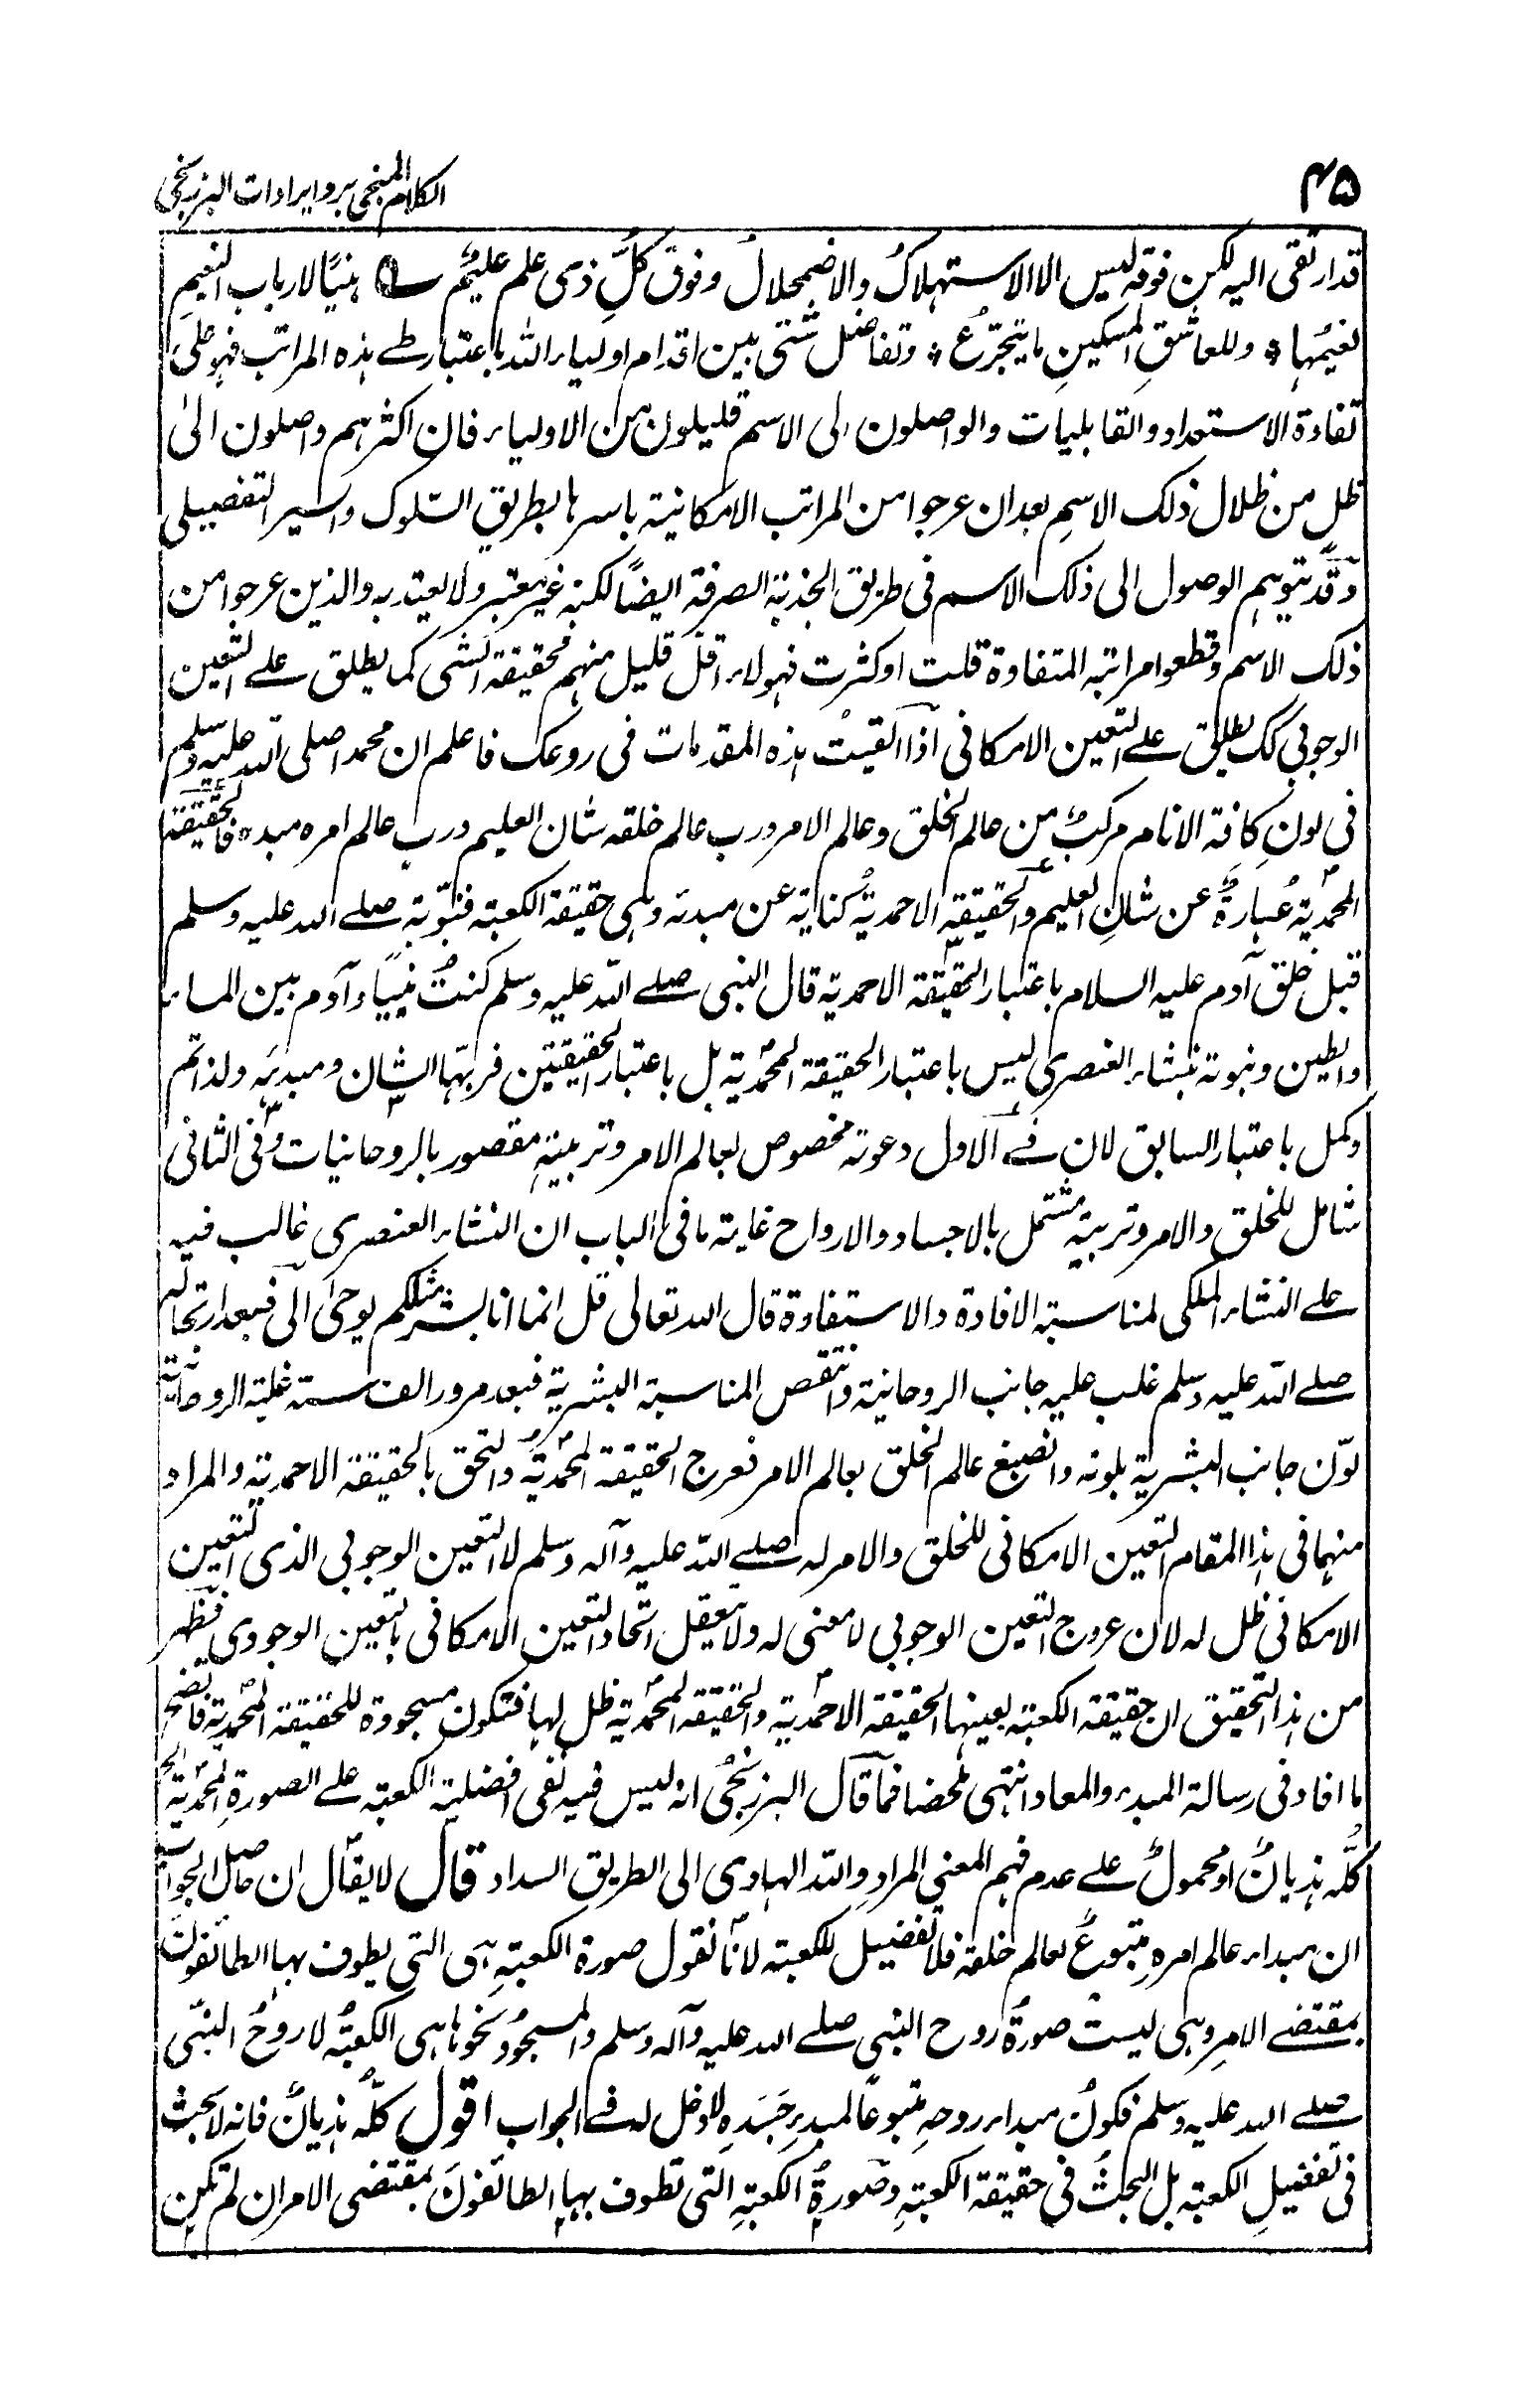 ۴۵
الكلام المنجی برد ایرادات البرزنجی
قد ارتقی الیه لکن فوقه لیس الا الاستهلاکُ والاضمحلالُ وفوق کلِّ ذی علم علیمٌ ے هنیًا لارباب النعیمِ
نعیمُها * وللعاشقِ المسکینِ ما یتجرّعُ * وتفاضل شتی بین اقدام اولیاء الله باعتبار طے هذه المراتب فهو علی
تفاوة الاستعداد والقابلیات والواصلون الی الاسم قلیلون من الاولیاء فان اکثرهم واصلون الیٰ
ظلٍ من ظلال ذلک الاسمِ بعد ان عرجوا من المراتب الامکانیة باسرها بطریق السّلوک والسیر التفصیلی
وقد یتوهم الوصول الی ذلک الاسم فی طریق الجذبة الصرفة ایضًا لکنه غیر معتبر ولا یعتد به والذین عرجوا من
ذلک الاسم وقطعوا مراتبه المتفاوة قلت او کثرت فهولاء اقل قلیل منهم فحقیقة الشی کما یطلق علے التعین
الوجوبی کک یطلق علے التعین الامکانی اذا القیت هذه المقدمات فی روعک فاعلم ان محمدا صلی الله علیه وسلم
فی لونِ کافة الانام مرکبٌ من عالم الخلق وعالم الامر ورب عالم خلقه شان العلیم ورب عالم امره مبدءه فالحقیقة
المحمدیةُ عبارةٌ عن شانِ العلیم والحقیقة الاحمدیةُ کنایة عن مبدئه وهی حقیقة الکعبة فنبوّته صلے الله علیه وسلم
قبل خلق آدم علیه السلام باعتبار الحقیقة الاحمدیة قال النبی صلے الله علیه وسلم کنتُ نبیًا وآدم بین الماء
والطین ونبوته بنشاء العنصری لیس باعتبار الحقیقة المحمدیة بل باعتبار الحقیقتین فربّها الشان ومبدئه ولذا تم
وکمل باعتبار السابق لان فے الاول دعوته مخصوص بعالم الامر وتربیتهِ مقصور بالروحانیات وفی الثانی
شامل للخلق والامر وتربیته مشتمل بالاجساد والارواح غایة ما فی الباب ان النشاء العنصری غالب فیه
علے النشاء الملکی لمناسبة الافادة والاستفادة قال الله تعالی قل انما انا بشر مثلکم یوحیٰ الی فبعد ارتحاله
صلے الله علیه وسلم غلب علیه جانب الروحانیة وانتقص المناسبة البشریة فبعد مرور الف سنة غلبة الروحانیة
لوّن جانب البشریة بلونه وانصبغ عالم الخلق بعالم الامر فعرج الحقیقة المحمدیةُ والتحق بالحقیقة الاحمدیة والمراد
منها فی هذا المقام التعین الامکانی للخلق والامر له صلے الله علیه وآله وسلم لا التعین الوجوبی الذی التعین
الامکانی ظل له لان عروج التعین الوجوبی لا معنی له ولا یتعقل اتحاد التعین الامکانی بالتعین الوجودی فظهر
من هذا التحقیق ان حقیقة الکعبة بعینها الحقیقة الاحمدیة والحقیقة المحمدیة ظل لها فتکون مسجودة للحقیقة المحمدیة فاتضح
ما افاد فی رسالة المبدء والمعاد انتهی ملخصا فما قال البرزنجیُ انه لیس فیه نفی افضلیة الکعبة علے الصورة المحمدیة الخ
کلّه هذیانٌ او محمولٌ علے عدم فهم المعنی المرادِ والله الهادی الی الطریق السداد قال لا یقال ان حاصل الجواب
ان مبداء عالم امرهِ متبوعٌ لعالم خلقه فلا تفضیل للکعبة لانّا نقول صورة الکعبةِ هی التی یطوف بها الطائفونَ
بمقتضے الامرِ وهی لیست صورةُ روح النبی صلے الله علیه وآله وسلم والمسجودُ نحوها هی الکعبةُ لا روحُ النبی
صلے الله علیه وسلم فکونُ مبداء روحهِ متبوعًا لمبدء جَسَدِهِ لا دخل له فے الجواب اقول کلّه هذیانٌ فانه لا بحث
فی تفضیلِ الکعبة بل البحثُ فی حقیقة الکعبةِ وصورةُ الکعبةِ التی تطوف بها الطائفونَ بمقتضی الامران لم تکن